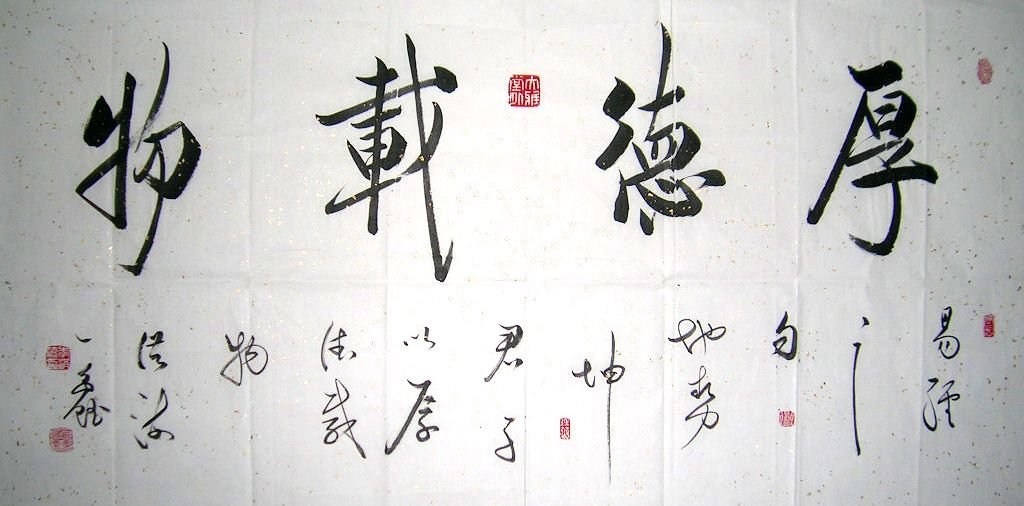 厚德載物
易經
之
句
地勢
坤
君子
以厚
德載
物